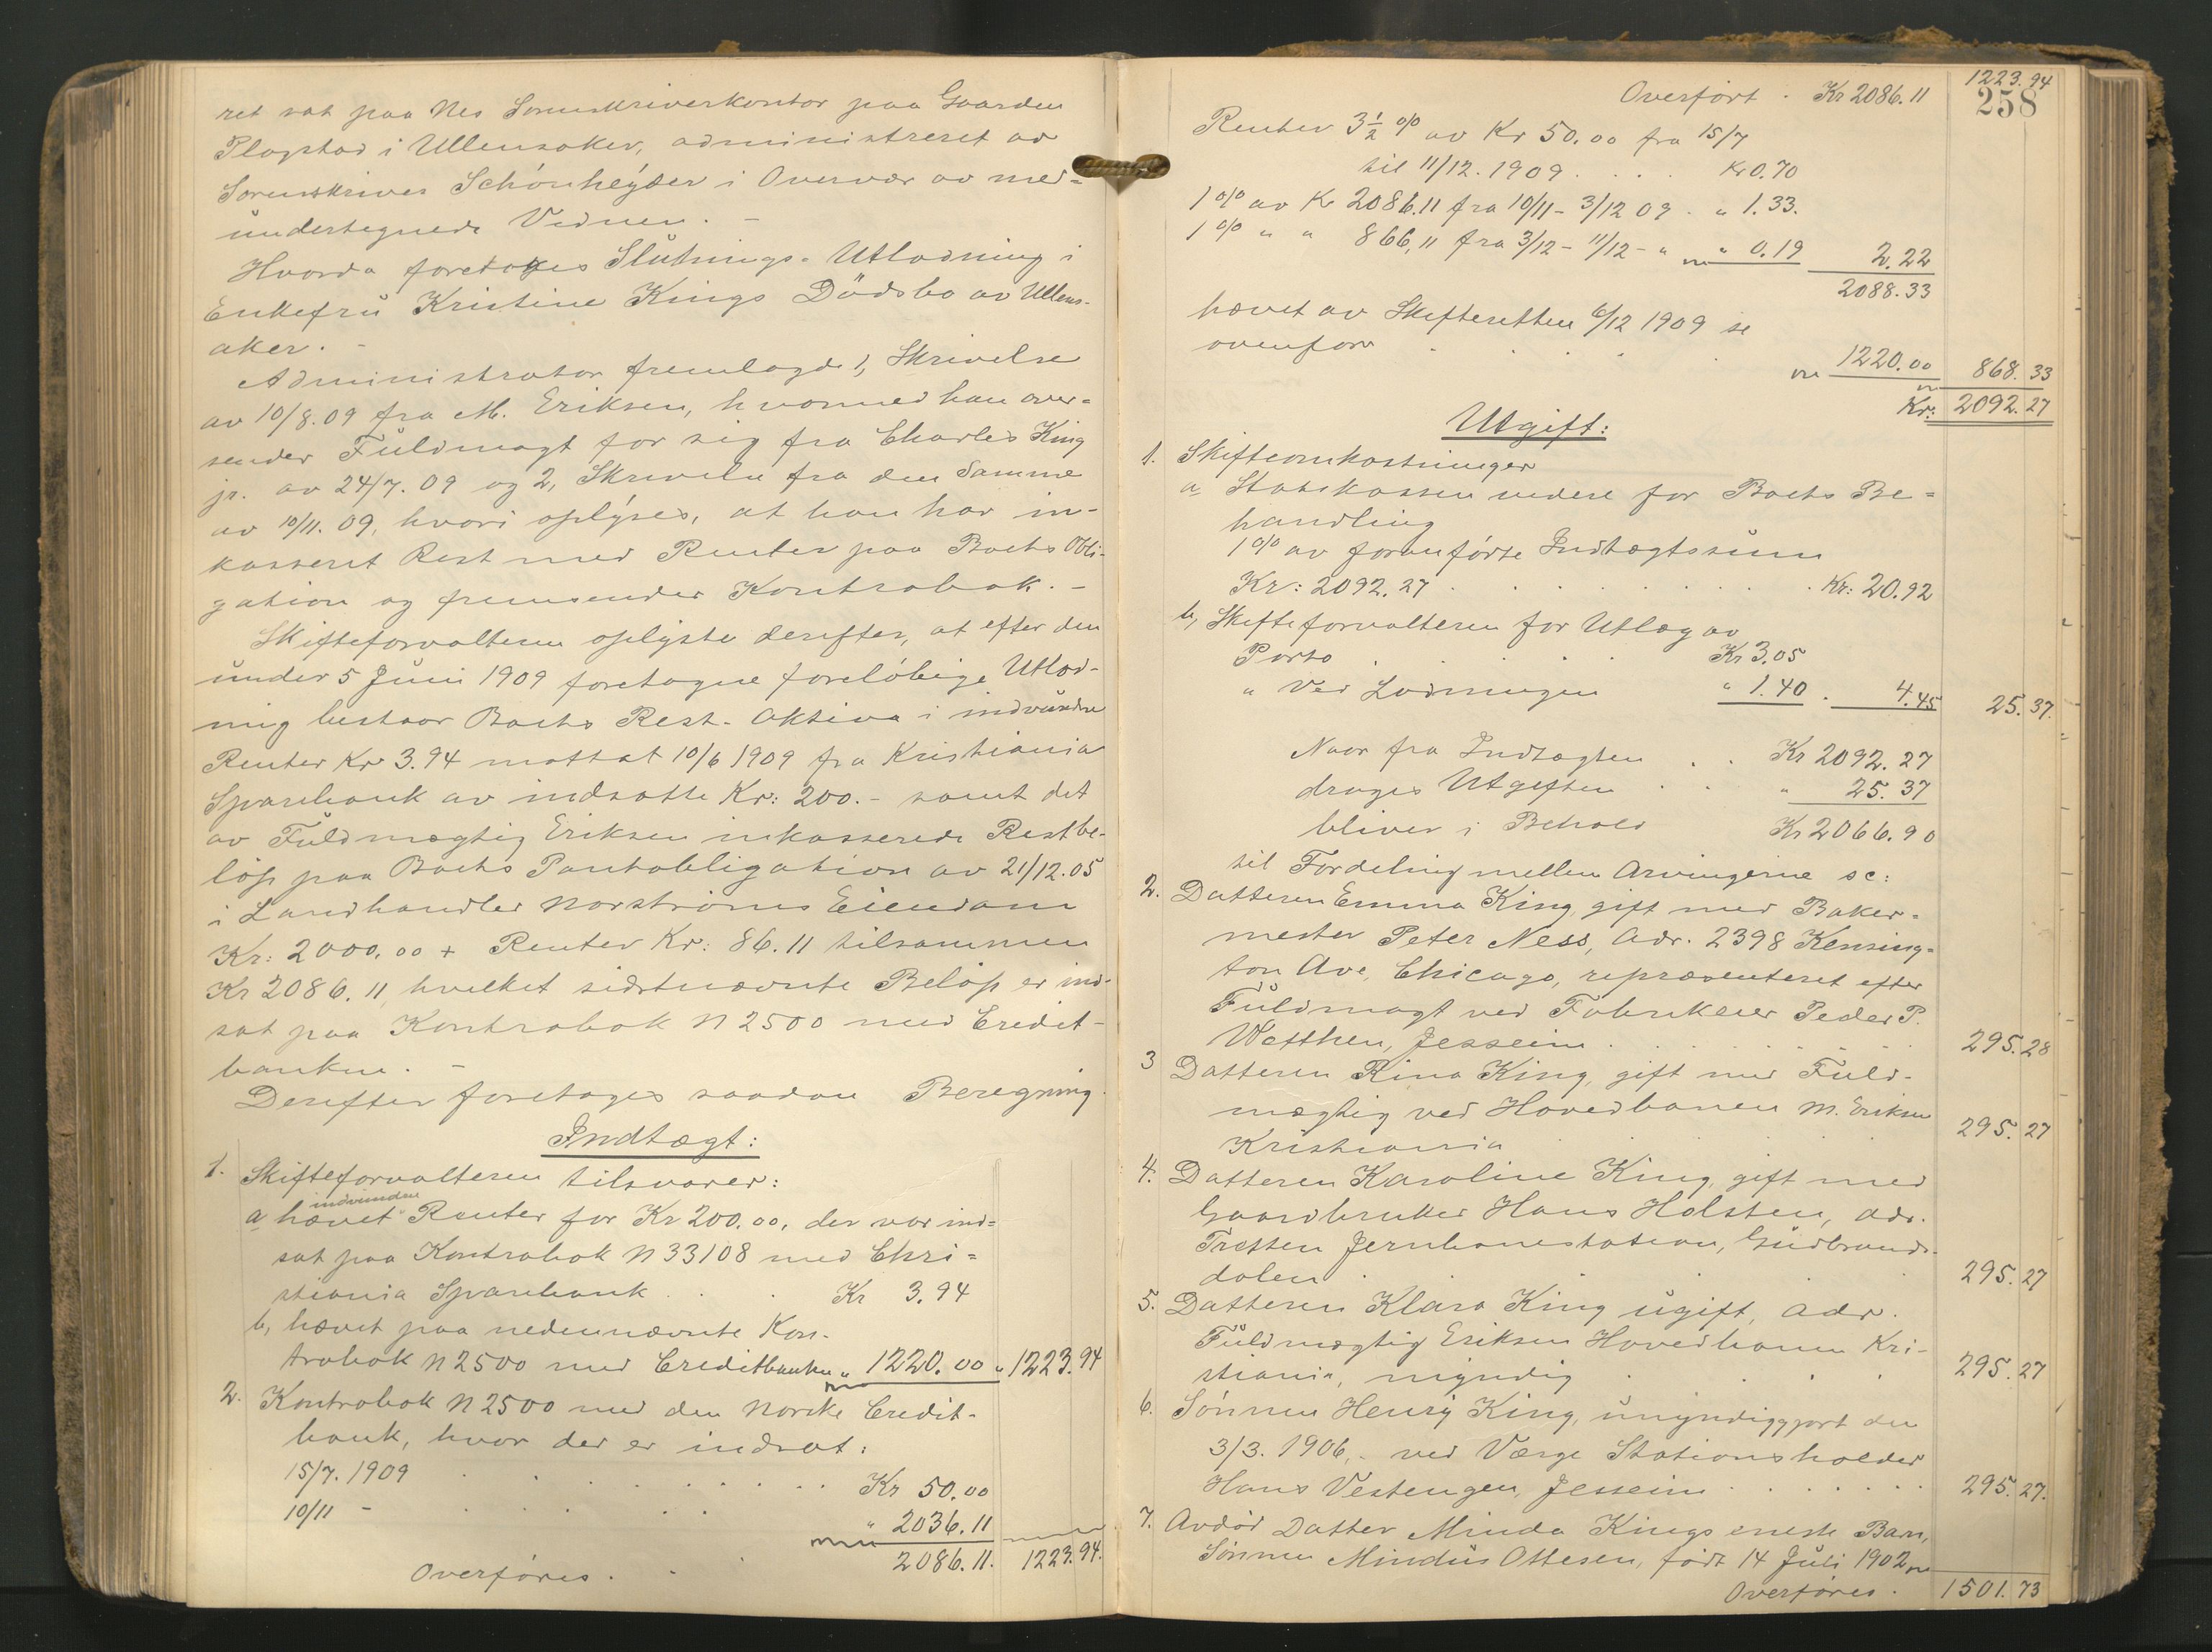 ret sat paa Nes Sorenskriverkontor paa Gaarden
Plogstad i Ullensaker, administreret av
Sorenskriver Schönheÿder i Overvær av med-
undertegnede Vidner. –
Hvorda foretoges Slutnings-Utlodning i
Enkefru Kristine Kings Dödsbo av Ullens-
aker. –
Administrator fremlagde 1, Skrivelse
av 10/8.09 fra M. Eriksen, hvormed han over-
sender Fuldmagt for sig fra Charles King
jr. av 24/7.09 og 2, Skrivelse fra den Samme
av 10/11.09, hvori oplyses, at han har in-
kasseret Rest med Renter paa Boets Obli-
gation og fremsender Kontrabok. –
Skifteforvalteren oplyste derefter, at efter den
under 5 Juni 1909 foretagne foreløbige Utlod-
ning bestaar Boets Rest-Aktiva i indvundne
Renter Kr 3.94 mottat 10/6 1909 fra Kristiania
Sparebank av indsatte Kr: 200.- samt det
av Fuldmægtig Eriksen inkasserede Restbe-
løp paa Boets Pantobligation av 21/12.05
i Landhandler Norstrøms Eiendom
Kr: 2000.00 + Renter Kr: 86.11 tilsammen
Kr 2086.11, hvilket sidstnævnte Beløp er ind-
sat paa Kontrabok N 2500 med Credit-
banken. –
Derefter foretoges saadan Beregning.
Indtægt:
1. Skifteforvalteren tilsvarer:
indvundne
a hævet Renter for Kr 200.00, der var ind-
sat paa Kontrabok N 33108 med Chri-
stiania Sparebank . . Kr 3.94
b, hævet paa nedennævnte Kon-
trabok N 2500 med Creditbanken " 1220.00 " 1223.94
2. Kontrabok N 2500 med den Norske Credit-
bank, hvor der er indsat:
15/7. 1909 . . . . . Kr 50.00
10/11 - . . . . " 2036.11
2086.11. 1223.94.
Overføres . .
Overført . Kr 2086.11 1223.94
258
Renter 3 1/2 % av Kr 50.00 fra 15/7
til 11/12.1909 . . . . Kr 0.70
1 % av Kr 2086.11 fra 10/11 - 3/12 09 . " 1.33.
1 % " " 866,11 fra 3/12 - 11/12 - " " 0.19 2.22
2088.33
hævet av Skifteretten 6/12 1909 se
ovenfor . . . . . 1220.00 868.33
Kr: 2092.27
Utgift:
1. Skifteomkostninger
a, Statskassen videre for Boets Be-
handling
1 % av foranførte Indtægtssum
Kr: 2092.27 . . . . . . Kr: 20.92
b, Skifteforvalteren for Utlæg av
Porto . . . . . Kr 3.05
" Ved Lodningen " 1.40 . 4.45 25.37.
Naar fra Indtægten . . Kr 2092.27
drages Utgiften . . " 25.37
bliver i Behold Kr 2066.90
til Fordeling mellem Arvingerne sc:
2. Datteren Emma King, gift med Baker-
mester Peter Ness, Adr. 2398 Kensing-
ton Ave, Chicago, repræsenteret efter
Fuldmagt ved Fabrikeier Peder P.
Watthen, Jessein . . . . . . 295.28
3 Datteren Rina King, gift med Fuld-
mægtig ved Hovedbanen M. Eriksen
Kristiania . . . . 295.27
4. Datteren Karoline King, gift med
Gaardbruker Hans Holsten, adr.
Tretten Jernbanestation, Gudbrands-
dalen . . . . . 295.27
5. Datteren Klara King ugift, adr.
Fuldmægtig Eriksen Hovedbanen Kri-
stiania, myndig . . . . 295.27
6. Sønnen Henry King, umyndiggjort den
3/3. 1906, - ved Værge Stationsholder
Hans Vestengen, Jessein . . . . . . 295.27.
7. Avdød Datter Minda Kings eneste Barn,
Sønnen Mindus Ottesen, født 14 Juli 1902
Overføres . 1501.73